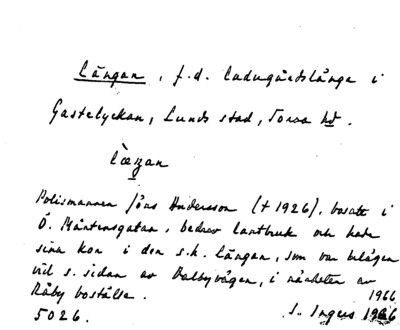 Längan, f.d. ladugårdslänga i
Gastelyckan, Lunds stad, Torna hd.
Polismannen Jöns Andersson (†1926), bosatt i
Ö. Mårtensgatan, bedrev lantbruk och hade
sina kor i den s.k. Längan, som var belägen
vid s. sidan av Dalbyvägen, i närheten av
Råby boställe. 1966
5026. S. Ingers